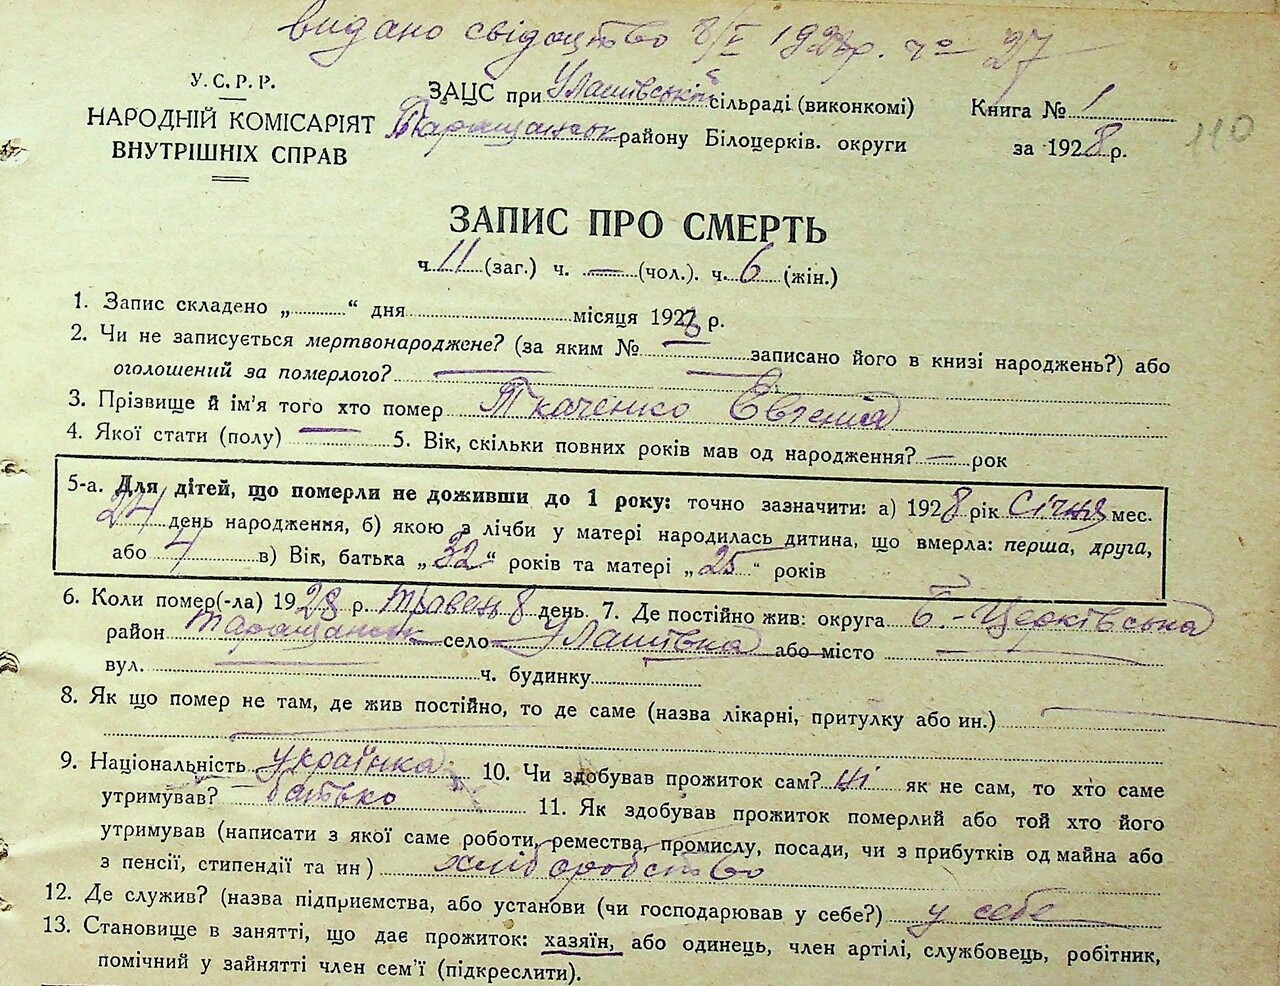 видано свідоцтво 8/V 1928р. чо 27
У.С.Р.Р.
НАРОДНІЙ КОМІСАРІЯТ
ВНУТРІШНІХ СПРАВ
ЗАЦС при Улашівській сільраді (виконкомі)
Таращанськ району Білоцерків. округи
Книга № 1
за 1928 р.
110
ЗАПИС ПРО СМЕРТЬ
ч. 11 (заг.) ч. — (чол.). ч. 6 (жін.)
1. Запис складено „ “ дня місяця 1928 р.
2. Чи не записується мертвонароджене? (за яким № — записано його в книзі народжень?) або
оголошений за померлого? — —
3. Прізвище й ім'я того хто помер Ткаченко Євгенія
4. Якої стати (полу) — 5. Вік, скільки повних років мав од народження? — рок
5-а. Для дітей, що померли не доживши до 1 року: точно зазначити: а) 1928 рік Січня мес.
24 день народження, б) якою з лічби у матері народилась дитина, що вмерла: перша, друга,
або 4 в) Вік, батька „32“ років та матері „25“ років
6. Коли помер(-ла) 1928 р. травень 8 день. 7. Де постійно жив: округа Б.-Церківська
район Таращанськ село Улашівка або місто —
вул. — ч. будинку
8. Як що помер не там, де жив постійно, то де саме (назва лікарні, притулку або ин.) —
—
9. Національність українка 10. Чи здобував прожиток сам? ні як не сам, то хто саме
утримував? батько 11. Як здобував прожиток померлий або той хто його
утримував (написати з якої саме роботи, ремества, промислу, посади, чи з прибутків од майна або
з пенсії, стипендії та ин) хліборобство
12. Де служив? (назва підприємства, або установи (чи господарював у себе?) у себе
13. Становище в занятті, що дає прожиток: хазяїн, або одинець, член артілі, службовець, робітник,
помічний у зайнятті член сем'ї (підкреслити).